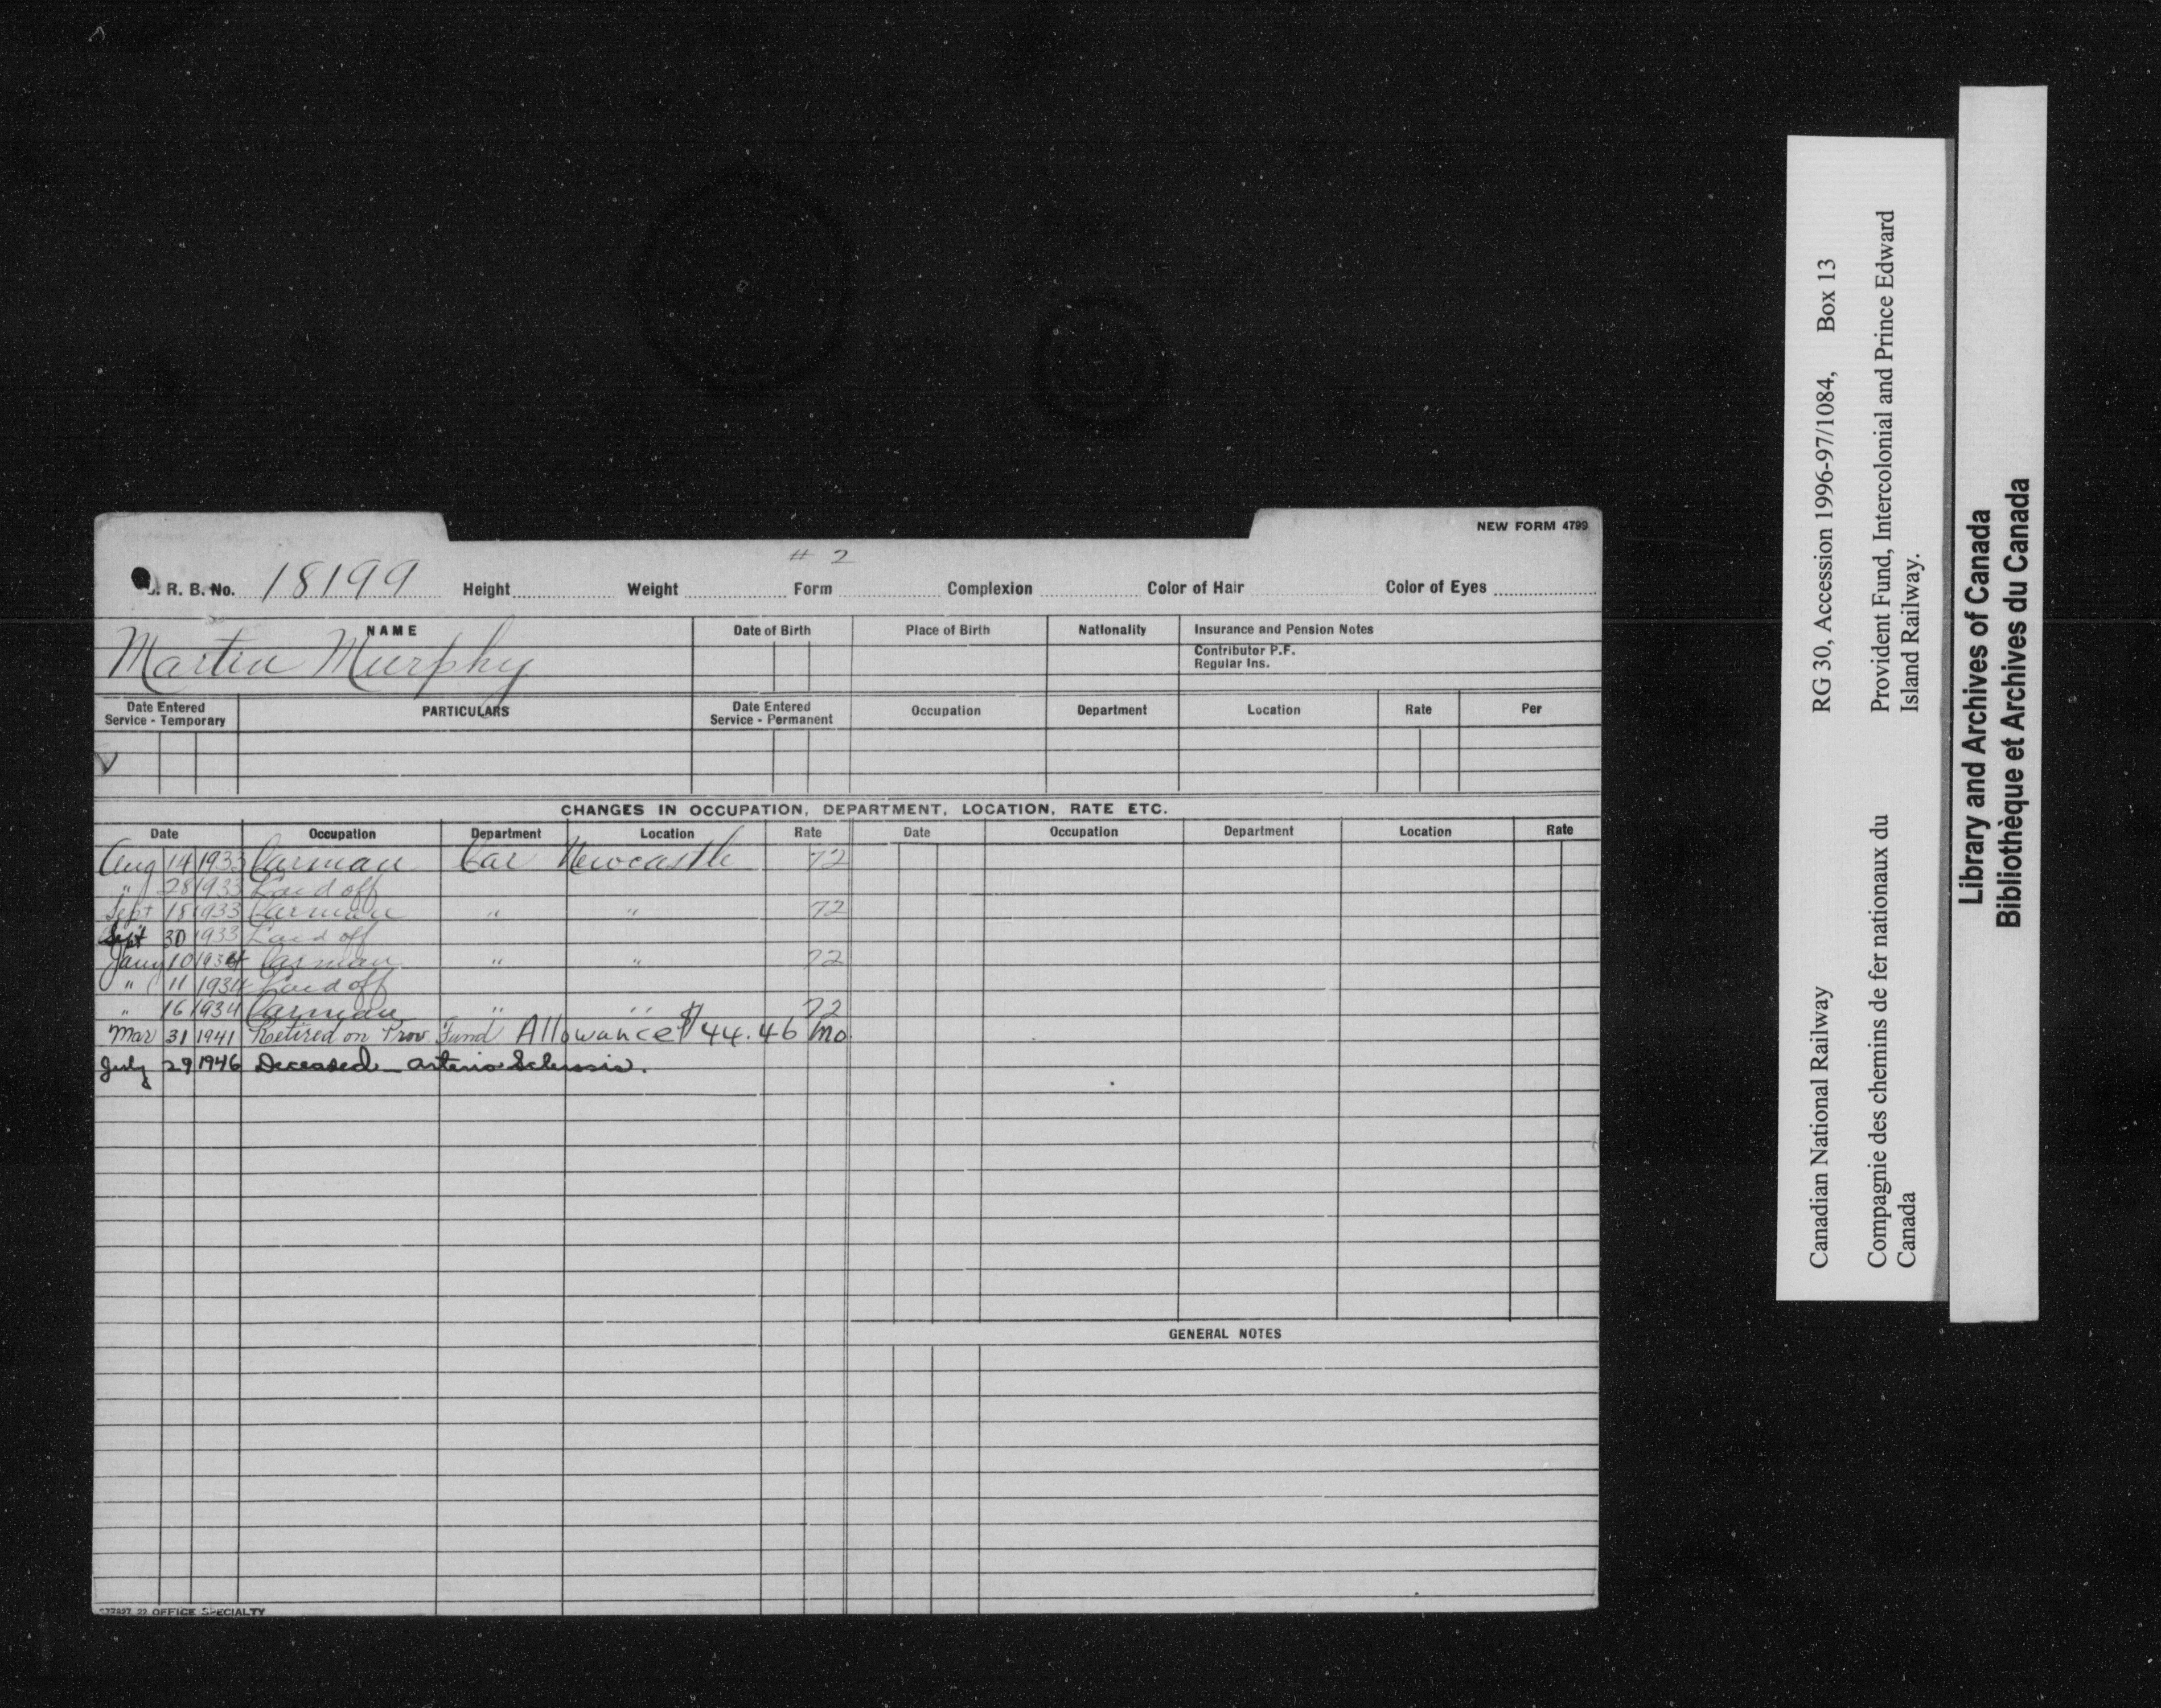 NEW FORM 4799
# 2
R. B. No. 18199 Height Weight Form Complexion Color of Hair Color of Eyes
NAME Date of Birth Place of Birth Nationality Insurance and Pension Notes
Martin Murphy
Contributor P.F.
Regular Ins.
Date Entered Service - Temporary PARTICULARS Date Entered Service - Permanent Occupation Department Location Rate Per
CHANGES IN OCCUPATION, DEPARTMENT, LOCATION, RATE ETC.
Date Occupation Department Location Rate Date Occupation Department Location Rate
Aug 14 1933 Carman Car Newcastle 72
" 28 1933 Laid off
Sept 18 1933 Carman " " 72
Sept 30 1933 Laid off
Jany 10 1934 Carman " " 72
" 11 1934 Laid off
" 16 1934 Carman " " 72
Mar 31 1941 Retired on Prov. Fund Allowance $44.46 Mo.
July 29 1946 Deceased - arterio Sclerosis.
GENERAL NOTES
OFFICE SPECIALTY
Canadian National Railway RG 30, Accession 1996-97/1084, Box 13
Compagnie des chemins de fer nationaux du Canada
Provident Fund, Intercolonial and Prince Edward Island Railway.
Library and Archives of Canada
Bibliothèque et Archives du Canada